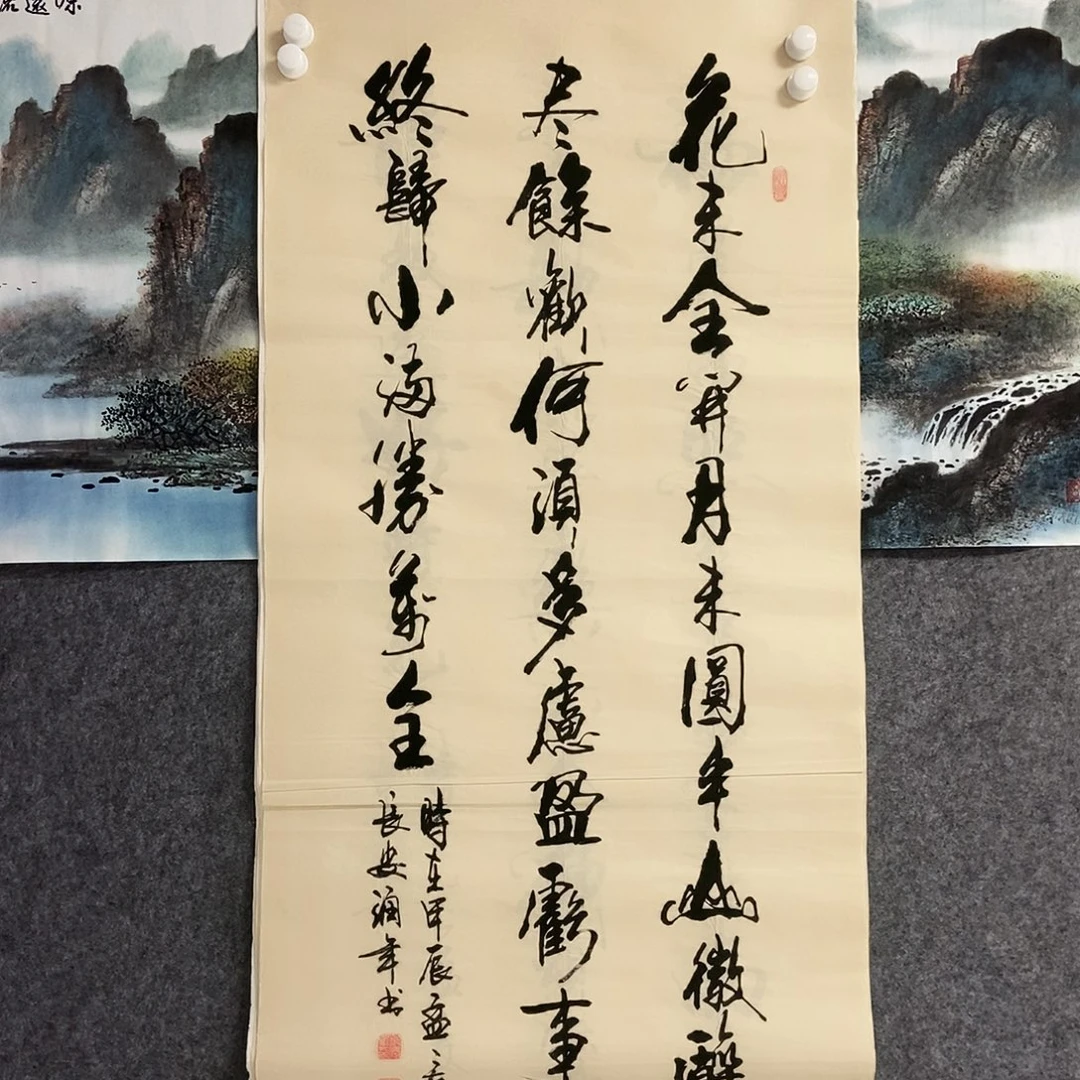 花未全開月未圓半山微醺
尽餘歡何須多慮盈虧事
終歸小滿勝萬全
時在甲辰孟
長安潤年书